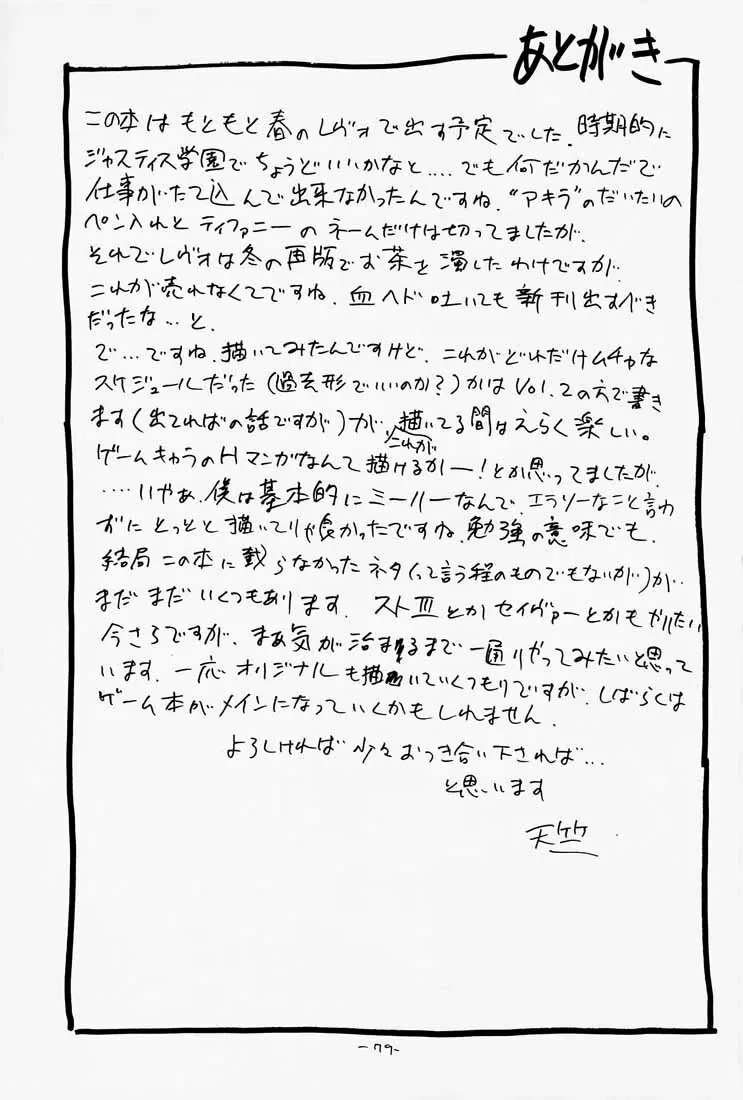 あとがき
この本はもともと春のレヴォで出す予定でした。時期的に
ジャスティス学園でちょうどいいかなと....でも何だかんだで
仕事がたて込んで出来なかったんですね。“アキラ”のだいたいの
ペン入れとティファニーのネームだけは切ってましたが。
それでレヴォは冬の再版でお茶を濁したわけですが
これが売れなくてですね。血ヘド吐いても新刊出すべき
だったな...と。
で...ですね。描いてみたんですけど、これがどれだけムチャな
スケジュールだった(過去形でいいのか?)かはVol.2の方で書き
ます(出てればの話ですが)が、描いてる間はえらく楽しい。
これが
ゲームキャラのHマンガなんて描けるかー!とか思ってましたが。
....いやあ、僕は基本的にミーハーなんで、エラソーなこと言わ
ずにとっとと描いてりゃ良かったですね。勉強の意味でも。
結局この本に載らなかったネタ(って言う程のものでもないが)が
まだまだいくつもあります。ストⅢとかセイヴァーとかもやりたい
今さらですが、まぁ気が治まるまで一通りやってみたいと思って
います。一応オリジナルも描いていくつもりですが、しばらくは
ゲーム本がメインになっていくかもしれません。
よろしければ少々おつき合い下されば...
と思います
天竺
-79-